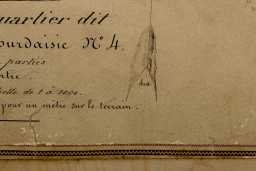 uartier dit
ourdaisie N° 4.
parties
elle de 1 à
pour un mètre sur le terrain.